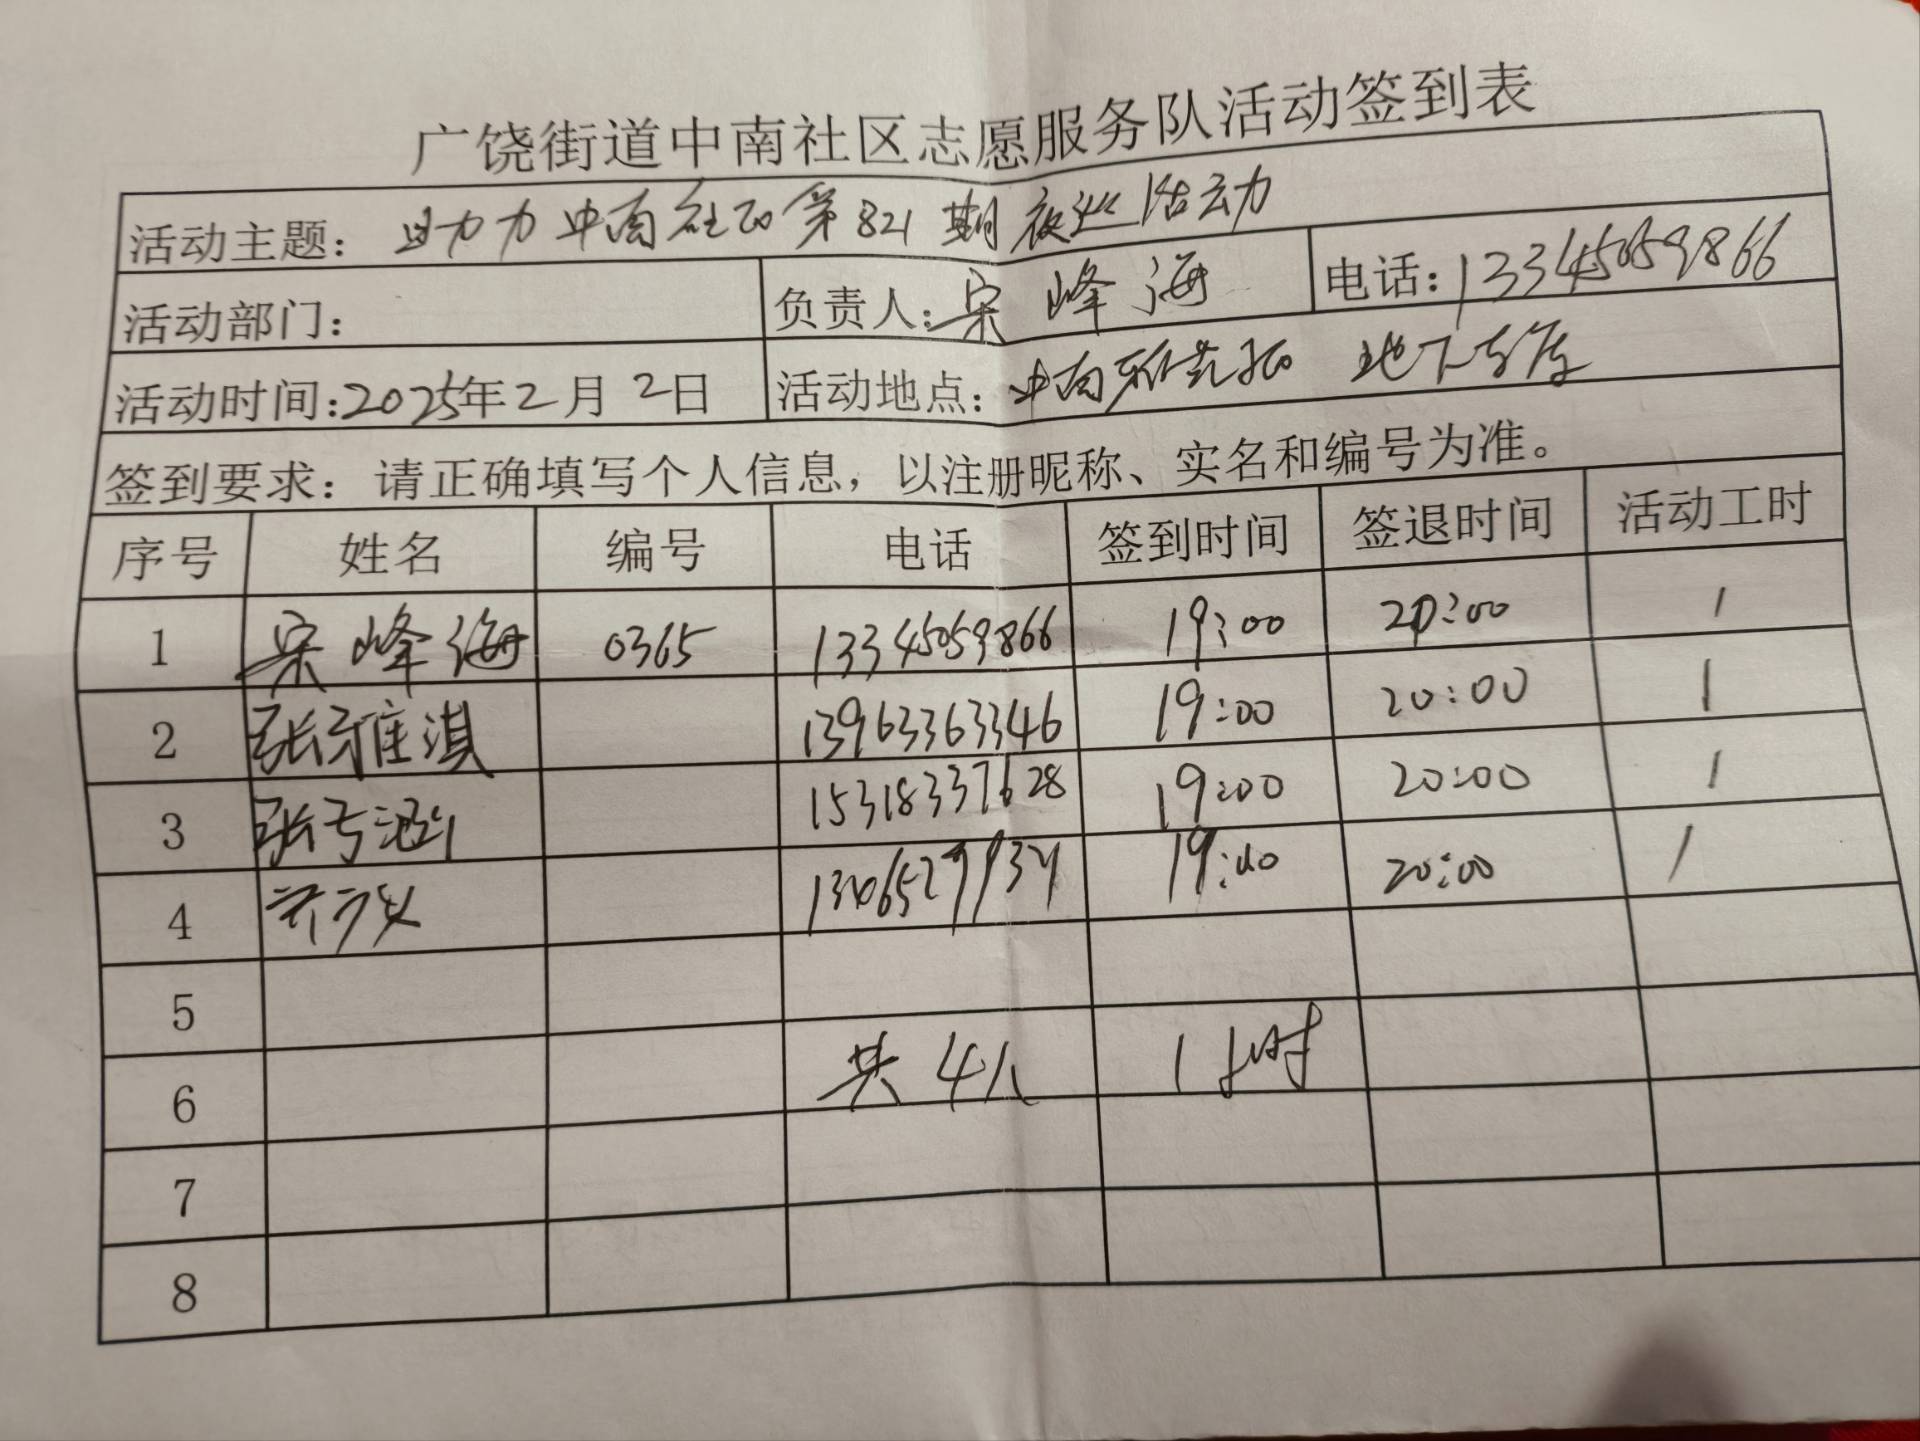 广饶街道中南社区志愿服务队活动签到表
活动主题：助力中南社区第821期夜巡活动
活动部门： 负责人：宋峰海 电话：13345059866
活动时间：2025年2月2日 活动地点：中南 地下车库
签到要求：请正确填写个人信息，以注册昵称、实名和编号为准。
序号 姓名 编号 电话 签到时间 签退时间 活动工时
1 宋峰海 0365 13345059866 19:00 20:00 1
2 张雅淇 13963363346 19:00 20:00 1
3 张 涵 15318337628 19:00 20:00 1
4 20:00 1
5
6 共4人 1小时
7
8